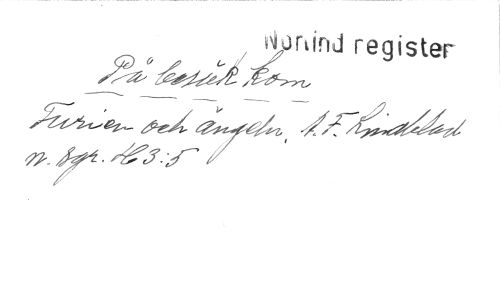 Norlind register
På besök kom
Furien och ängeln, A.F. Lindblad
n. sgr. H 3:5